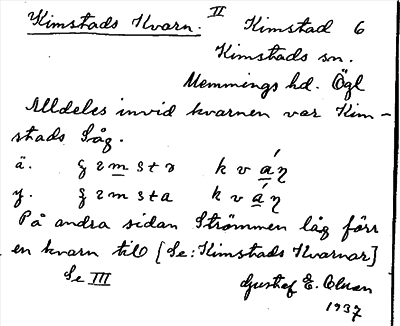 Kimstads Kvarn. II Kimstad 6
Kimstads sn.
Memmings hd. Ögl
Alldeles invid kvarnen var Kim-
stads Såg.
ä. kv
y. kv
På andra sidan Strömmen låg förr
en kvarn till [Se: Kimstads Kvarnar]
Se III Gustaf E. Olsson
1937